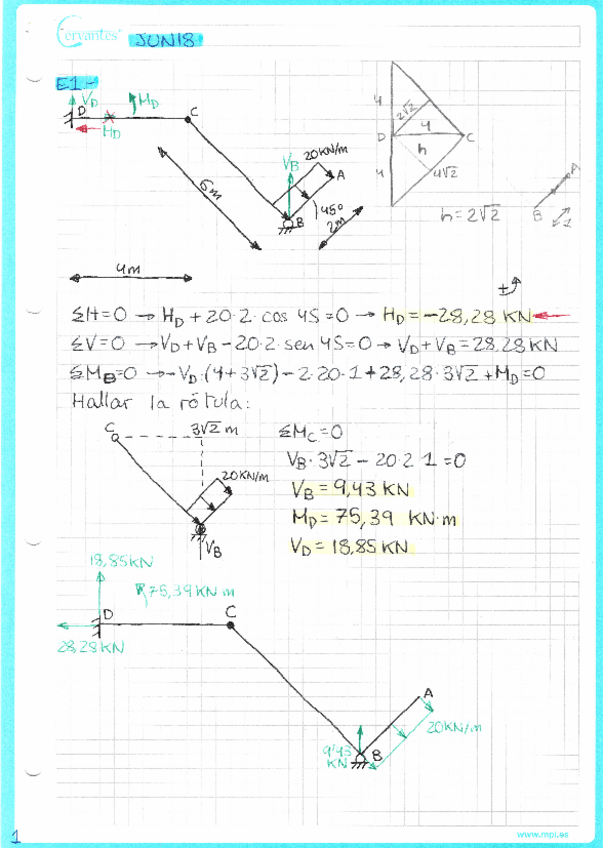 Cervantes JUN18
E1.-
V_D
M_D
D
H_D
C
20KN/m
V_B
A
45º
B
6m
2m
4m
4
2√2
4
D
C
h
4
4√2
h = 2√2
A
B
1
±
ΣH=0 → H_D + 20·2· cos 45=0 → H_D = -28,28 KN ←
ΣV=0 → V_D + V_B - 20·2· sen 45=0 → V_D + V_B = 28,28 KN
ΣM_B=0 → -V_D·(4+3√2) - 2·20·1 + 28,28·3√2 + M_D = 0
Hallar la rótula:
C
3√2 m
20KN/m
V_B
ΣM_C=0
V_B·3√2 - 20·2·1=0
V_B = 9,43 KN
M_D = 75,39 KN·m
V_D = 18,85 KN
18,85KN
75,39 KN m
D
C
28,28 KN
A
20KN/m
9'43
KN
B
1
www.mpi.es